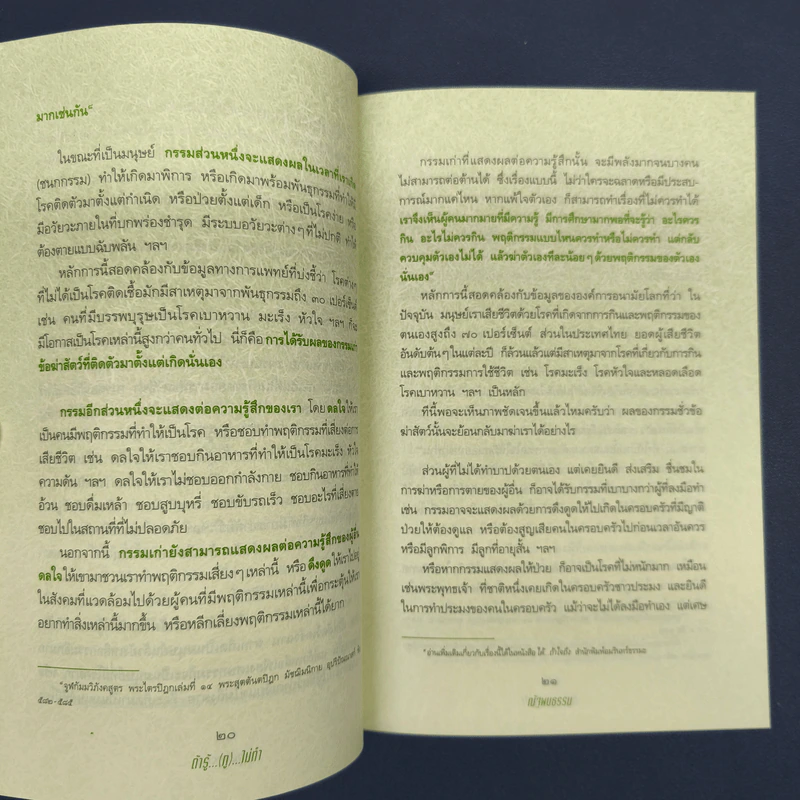 มากเช่นกัน
ในขณะที่เป็นมนุษย์ กรรมส่วนหนึ่งจะแสดงผลในเวลาที่เรา
(ชนกกรรม) ทำให้เกิดมาพิการ หรือเกิดมาพร้อมพันธุกรรมที่ทำให้
โรคติดตัวมาตั้งแต่กำเนิด หรือป่วยตั้งแต่เด็ก หรือเป็นโรคง่าย
มีอวัยวะภายในที่บกพร่องชำรุด มีระบบอวัยวะต่างๆที่ไม่ปกติ ทำให้
ต้องตายแบบฉับพลัน ฯลฯ
หลักการนี้สอดคล้องกับข้อมูลทางการแพทย์ที่บ่งชี้ว่า โรคต่างๆ
ที่ไม่ได้เป็นโรคติดเชื้อมักมีสาเหตุมาจากพันธุกรรมถึง ๓๐ เปอร์เซ็นต์
เช่น คนที่มีบรรพบุรุษเป็นโรคเบาหวาน มะเร็ง หัวใจ ฯลฯ ก็จะ
มีโอกาสเป็นโรคเหล่านี้สูงกว่าคนทั่วไป นี่ก็คือ การได้รับผลของกรรม
ข้อฆ่าสัตว์ที่ติดตัวมาตั้งแต่เกิดนั่นเอง
กรรมอีกส่วนหนึ่งจะแสดงต่อความรู้สึกของเรา โดย ดลใจ ให้เรา
เป็นคนมีพฤติกรรมที่ทำให้เป็นโรค หรือชอบทำพฤติกรรมที่เสี่ยงต่อการ
เสียชีวิต เช่น ดลใจให้เราชอบกินอาหารที่ทำให้เป็นโรคมะเร็ง หัวใจ
ความดัน ฯลฯ ดลใจให้เราไม่ชอบออกกำลังกาย ชอบกินอาหารที่ทำให้
อ้วน ชอบดื่มเหล้า ชอบสูบบุหรี่ ชอบขับรถเร็ว ชอบอะไรที่เสี่ยงตาย
ชอบไปในสถานที่ที่ไม่ปลอดภัย
นอกจากนี้ กรรมเก่ายังสามารถแสดงผลต่อความรู้สึกของผู้อื่น
ดลใจ ให้เขามาชวนเราทำพฤติกรรมเสี่ยงๆเหล่านี้ หรือ ดึงดูด ให้เราไปอยู่
ในสังคมที่แวดล้อมไปด้วยผู้คนที่มีพฤติกรรมเหล่านี้เพื่อกระตุ้นให้เรา
อยากทำสิ่งเหล่านี้มากขึ้น หรือหลีกเลี่ยงพฤติกรรมเหล่านี้ได้ยาก
พระไตรปิฎกเล่มที่ ๑๔ พระสุตตันตปิฎก มัชฌิมนิกาย
๕๘๒-๕๘๕
๒๐
ถ้ารู้...(กู)...ไม่ทำ
กรรมเก่าที่แสดงผลต่อความรู้สึกนั้น จะมีพลังมากจนบางคน
ไม่สามารถต่อต้านได้ ซึ่งเรื่องแบบนี้ ไม่ว่าใครจะฉลาดหรือมีประสบ-
การณ์มากแค่ไหน หากแพ้ใจตัวเอง ก็สามารถทำเรื่องที่ไม่ควรทำได้
เราจึงเห็นผู้คนมากมายที่มีความรู้ มีการศึกษามากพอที่จะรู้ว่า อะไรควร
กิน อะไรไม่ควรกิน พฤติกรรมแบบไหนควรทำหรือไม่ควรทำ แต่กลับ
ควบคุมตัวเองไม่ได้ แล้วฆ่าตัวเองทีละน้อยๆด้วยพฤติกรรมของตัวเอง
นั่นเอง
หลักการนี้สอดคล้องกับข้อมูลขององค์การอนามัยโลกที่ว่า ใน
ปัจจุบัน มนุษย์เราเสียชีวิตด้วยโรคที่เกิดจากการกินและพฤติกรรมของ
ตนเองสูงถึง ๗๐ เปอร์เซ็นต์ ส่วนในประเทศไทย ยอดผู้เสียชีวิต
อันดับต้นๆในแต่ละปี ก็ล้วนแล้วแต่มีสาเหตุมาจากโรคที่เกี่ยวกับการกิน
และพฤติกรรมการใช้ชีวิต เช่น โรคมะเร็ง โรคหัวใจและหลอดเลือด
โรคเบาหวาน ฯลฯ เป็นหลัก
ทีนี้พอจะเห็นภาพชัดเจนขึ้นแล้วไหมครับว่า ผลของกรรมชั่วข้อ
ฆ่าสัตว์นั้นจะย้อนกลับมาฆ่าเราได้อย่างไร
ส่วนผู้ที่ไม่ได้ทำบาปด้วยตนเอง แต่เคยยินดี ส่งเสริม ชื่นชมใน
การฆ่าหรือการตายของผู้อื่น ก็อาจได้รับกรรมที่เบาบางกว่าผู้ที่ลงมือทำ
เช่น กรรมอาจจะแสดงผลด้วยการดึงดูดให้ไปเกิดในครอบครัวที่มีญาติ
ป่วยให้ต้องดูแล หรือต้องสูญเสียคนในครอบครัวไปก่อนเวลาอันควร
หรือมีลูกพิการ มีลูกที่อายุสั้น ฯลฯ
หรือหากกรรมแสดงผลให้ป่วย ก็อาจเป็นโรคที่ไม่หนักมาก เหมือน
เช่นพระพุทธเจ้า ที่ชาติหนึ่งเคยเกิดในครอบครัวชาวประมง และยินดี
ในการทำประมงของคนในครอบครัว แม้ว่าจะไม่ได้ลงมือทำเอง แต่เศษ
อ่านเพิ่มเติมเกี่ยวกับเรื่องนี้ได้ในหนังสือ สำนักพิมพ์อมรินทร์ธรรมะ
๒๑
ณ้าพบธรรม